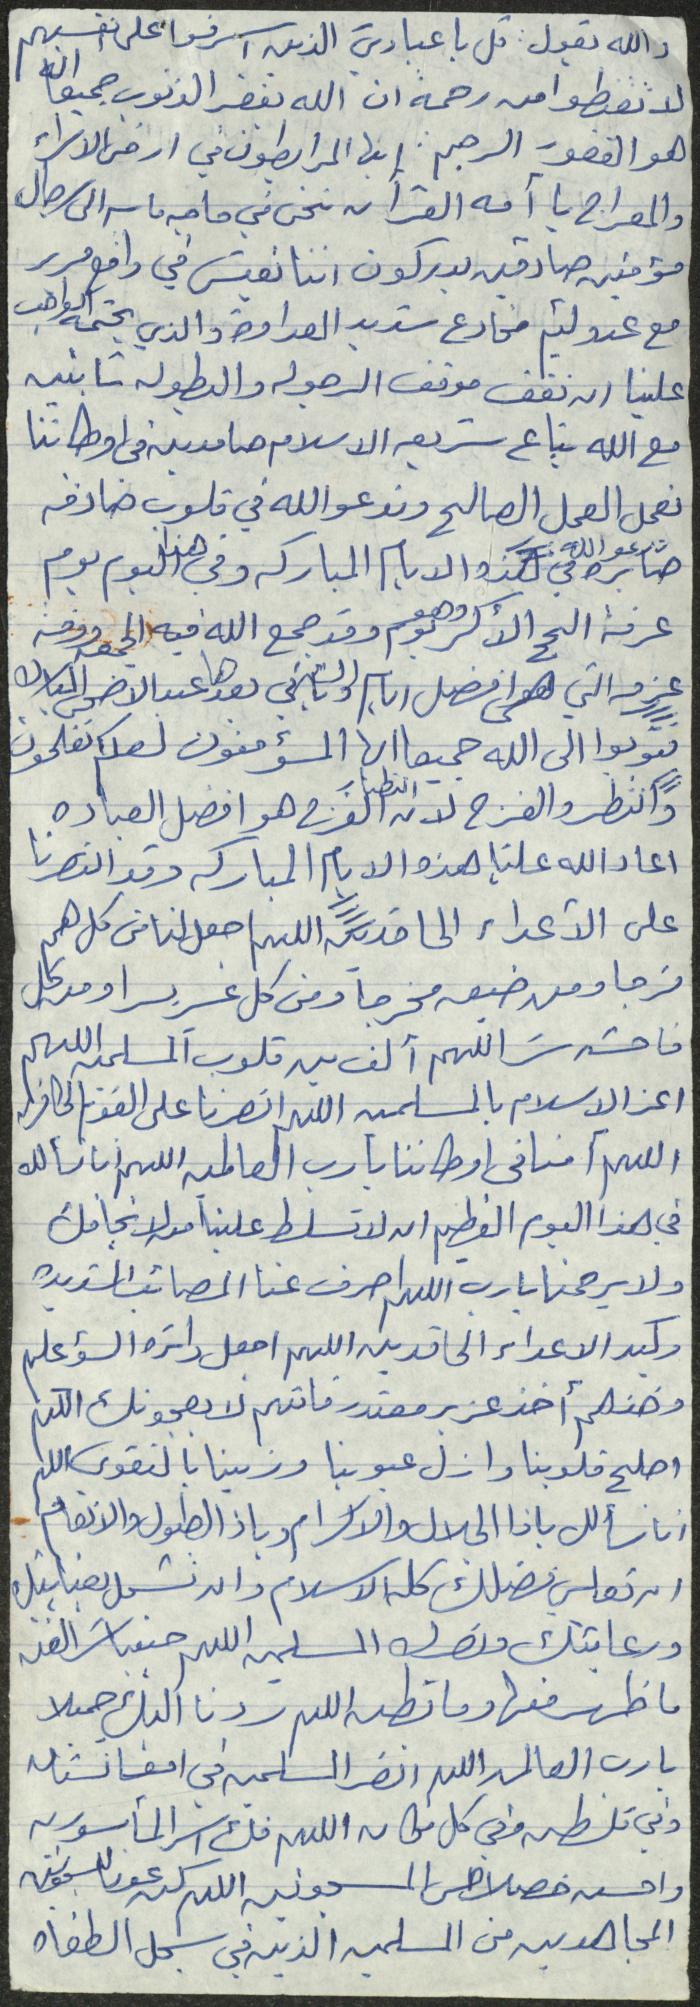 والله يقول: قل يا عبادي الذين أسرفوا على أنفسهم
لا تقنطوا من رحمة ان الله يغفر الذنوب جميعا انه
هو الغفور الرحيم: ايها المرابطون في ارض الاسراء
والمعراج يا أمة القرآن نحن في حاجه ماسه الى رجال
مؤمنين صادقين يدركون اننا نعيش في واقع مرير
مع عدو لئيم مخادع شديد العداوة والذي يحتمه الواجب
علينا ان نقف موقف الرجوله والبطوله ثابتين
مع الله بتباع شريعه الاسلام صامدين في اوطاننا
نعمل العمل الصالح وندعو الله في قلوب صادقه
صابرة في هذه الايام المباركه وفي هذا اليوم يوم
عرفة الحج الأكبر وهو يوم وقد جمع الله فيه الجمعه ووقفة
عرفه التي هي افضل ايام والتي يأتي بعدها عيد الاضحى المبارك
فتوبوا الى الله جميعا ايها المؤمنون لعلكم تفلحون
وانتظروا الفرج لان انتظار الفرج هو افضل العباده
اعاد الله علينا هذه الايام المباركه وقد انتصرنا
على الأعداء الحاقدين اللهم اجعل لنا من كل هم
فرجا ومن ضيق مخرجاً ومن كل عسر يسرا ومن كل
فاحشه ستراً اللهم ألف بين قلوب المسلمين اللهم
اعز الاسلام بالمسلمين اللهم انصرنا على القوم الكافرين
اللهم آمنا في اوطاننا يا رب العالمين اللهم انا نسألك
في هذا اليوم العظيم ان لا تسلط علينا من لا يخافك
ولا يرحمنا يا رب اللهم اصرف عنا المصائب الشديده
وكيد الاعداء الحاقدين اللهم اجعل دائرة السؤ عليهم
وخذهم أخذ عزيز مقتدر فانهم لا يعجزونك اللهم
اصلح قلوبنا وازل عيوبنا وزينا بالتقوى اللهم
انا نسألك يا ذا الجلال والاكرام ويا ذا الطول والانعام
ان تعلي بفضلك كلمة الاسلام وان تشمل بعنايتك
ورعايتك ونصرك المسلمين اللهم جنبنا الفتن
ما ظهر منها وما بطن اللهم ردنا اليك جميلا
يا رب العالمين اللهم انصر المسلمين في افغانستان
وفي فلسطين وفي كل مكان اللهم فك اسر المأسورين
واحسن خلاص المسجونين اللهم كن عونا
المجاهدين من المسلمين الذين في سجل الطغاه